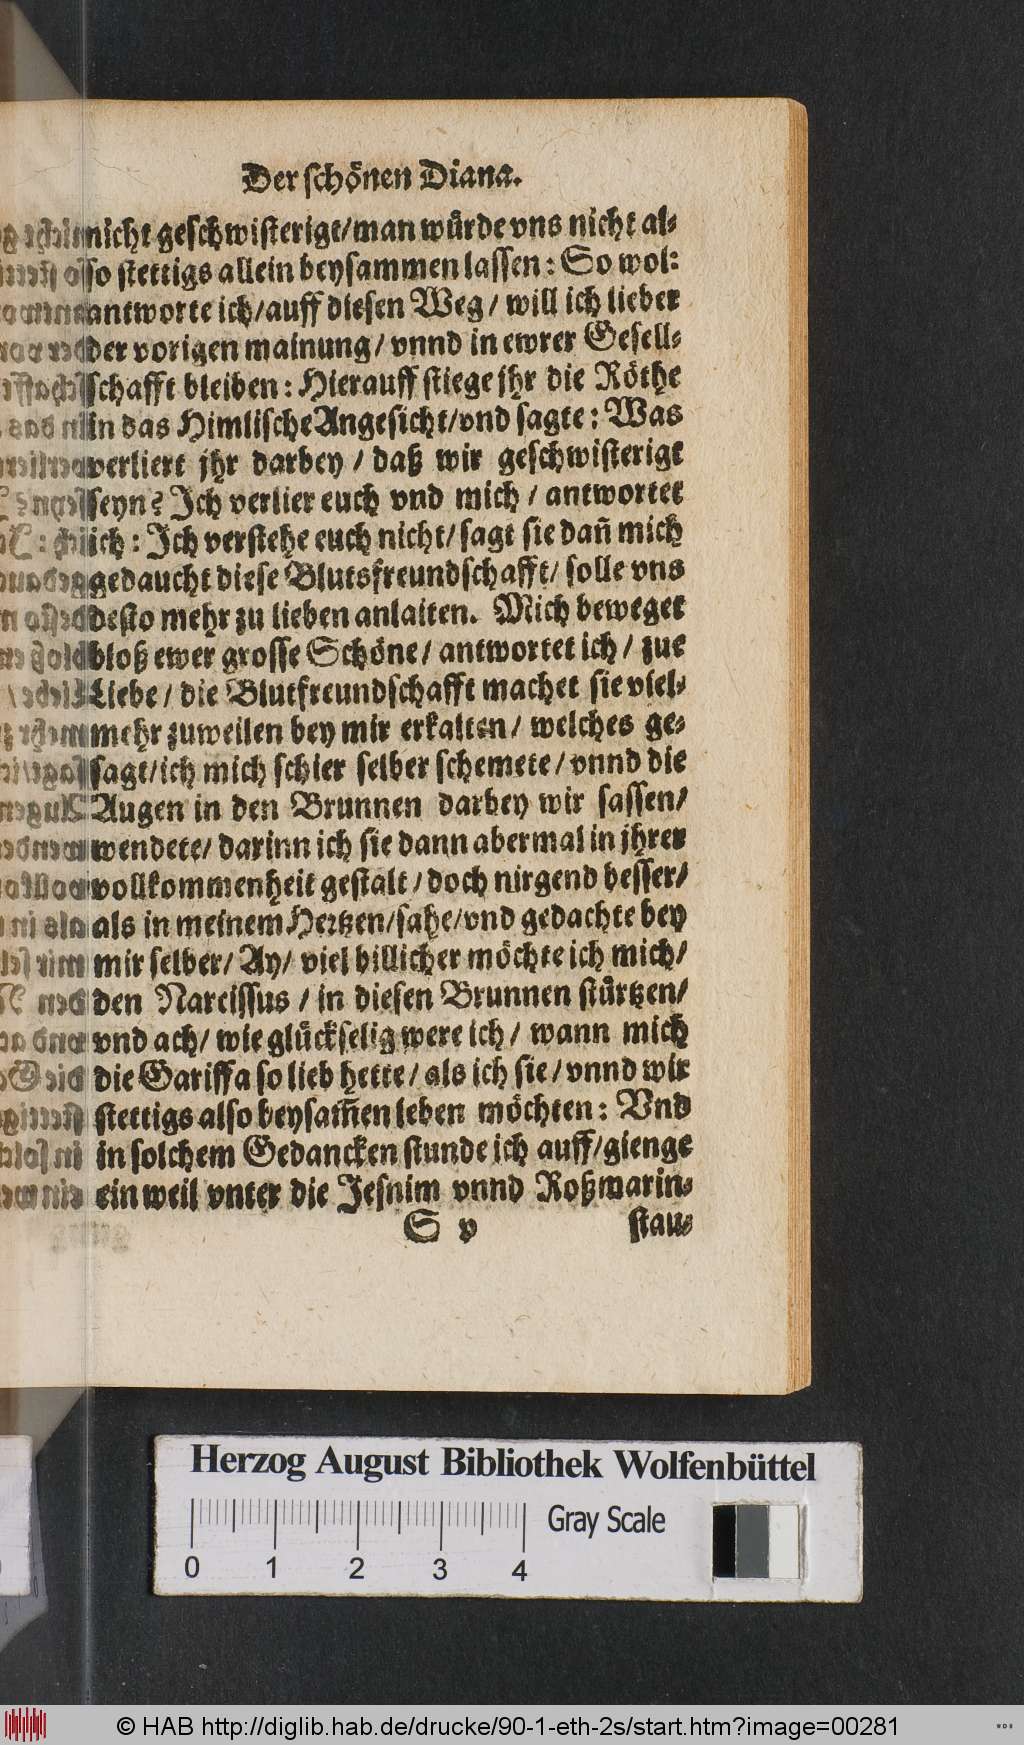 Der schönen Diana.
nicht geschwisterigt/man würde vns nicht al⸗
so stettigs allein beysammen lassen: So wol:
antworte ich/auff diesen Weg/ will ich lieber
der vorigen mainung/ vnnd in ewrer Gesell⸗
schafft bleiben: Hierauff stiege jhr die Röthe
in das Himlische Angesicht/vnd sagte: Was
verliert jhr darbey/ daß wir geschwisterigt
seyn? Ich verlier euch vnd mich/ antwortet
ich: Ich verstehe euch nicht/ sagt sie dañ mich
gedaucht diese Blutsfreundschafft/ solle vns
desto mehr zu lieben anlaiten. Mich beweget
bloß ewer grosse Schöne/ antwortet ich/ zue
Liebe/ die Blutfreundschafft machet sie viel⸗
mehr zuweilen bey mir erkalten/ welches ge⸗
sagt/ich mich schier selber schemete/ vnnd die
Augen in den Brunnen darbey wir sassen/
wendete/ darinn ich sie dann abermal in jhrer
vollkommenheit gestalt/ doch nirgend besser/
als in meinem Hertzen/sahe/vnd gedachte bey
mir selber/ Ay/ viel billicher möchte ich mich/
den Narcissus/ in diesen Brunnen stürtzen/
vnd ach/ wie glückselig were ich/ wann mich
die Gariffa so lieb hette/ als ich sie/ vnnd wir
stettigs also beysam̃en leben möchten: Vnd
in solchem Gedancken stunde ich auff/gienge
ein weil vnter die Jesnim vnnd Roßmarin⸗
S v stau⸗
Herzog August Bibliothek Wolfenbüttel
Gray Scale
0 1 2 3 4
© HAB http://diglib.hab.de/drucke/90-1-eth-2s/start.htm?image=00281